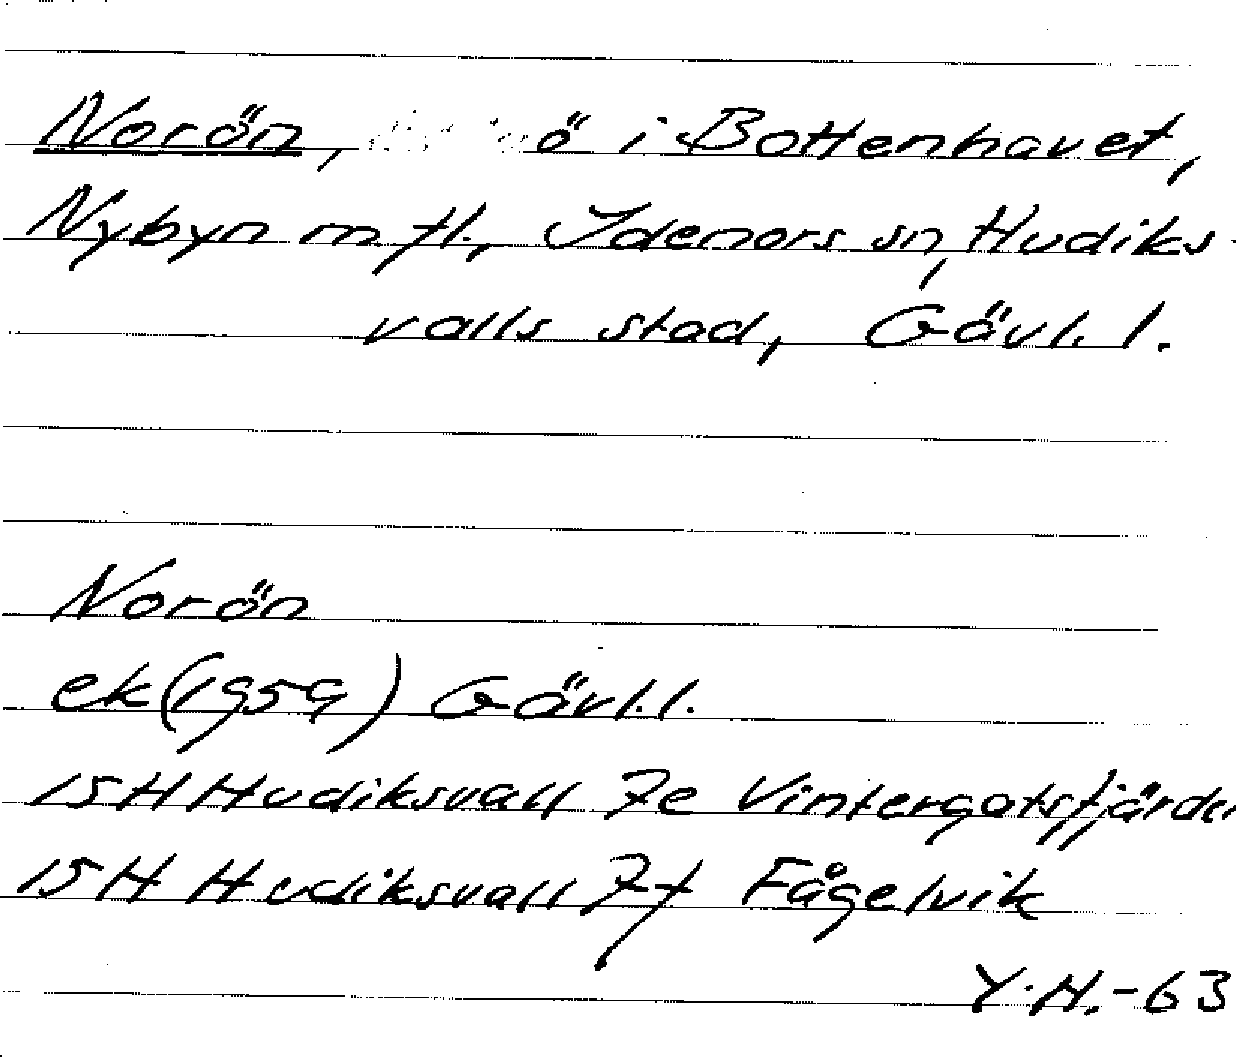 Norön, ö i Bottenhavet,
Nybyn m fl., Idenors sn, Hudiks-
valls stad, Gävl. l.
Norön
ek (1959) Gävl. l.
15H Hudiksvall 7e Vintergatsfjärden
15H Hudiksvall 7f Fågelvik
Y.H.-63